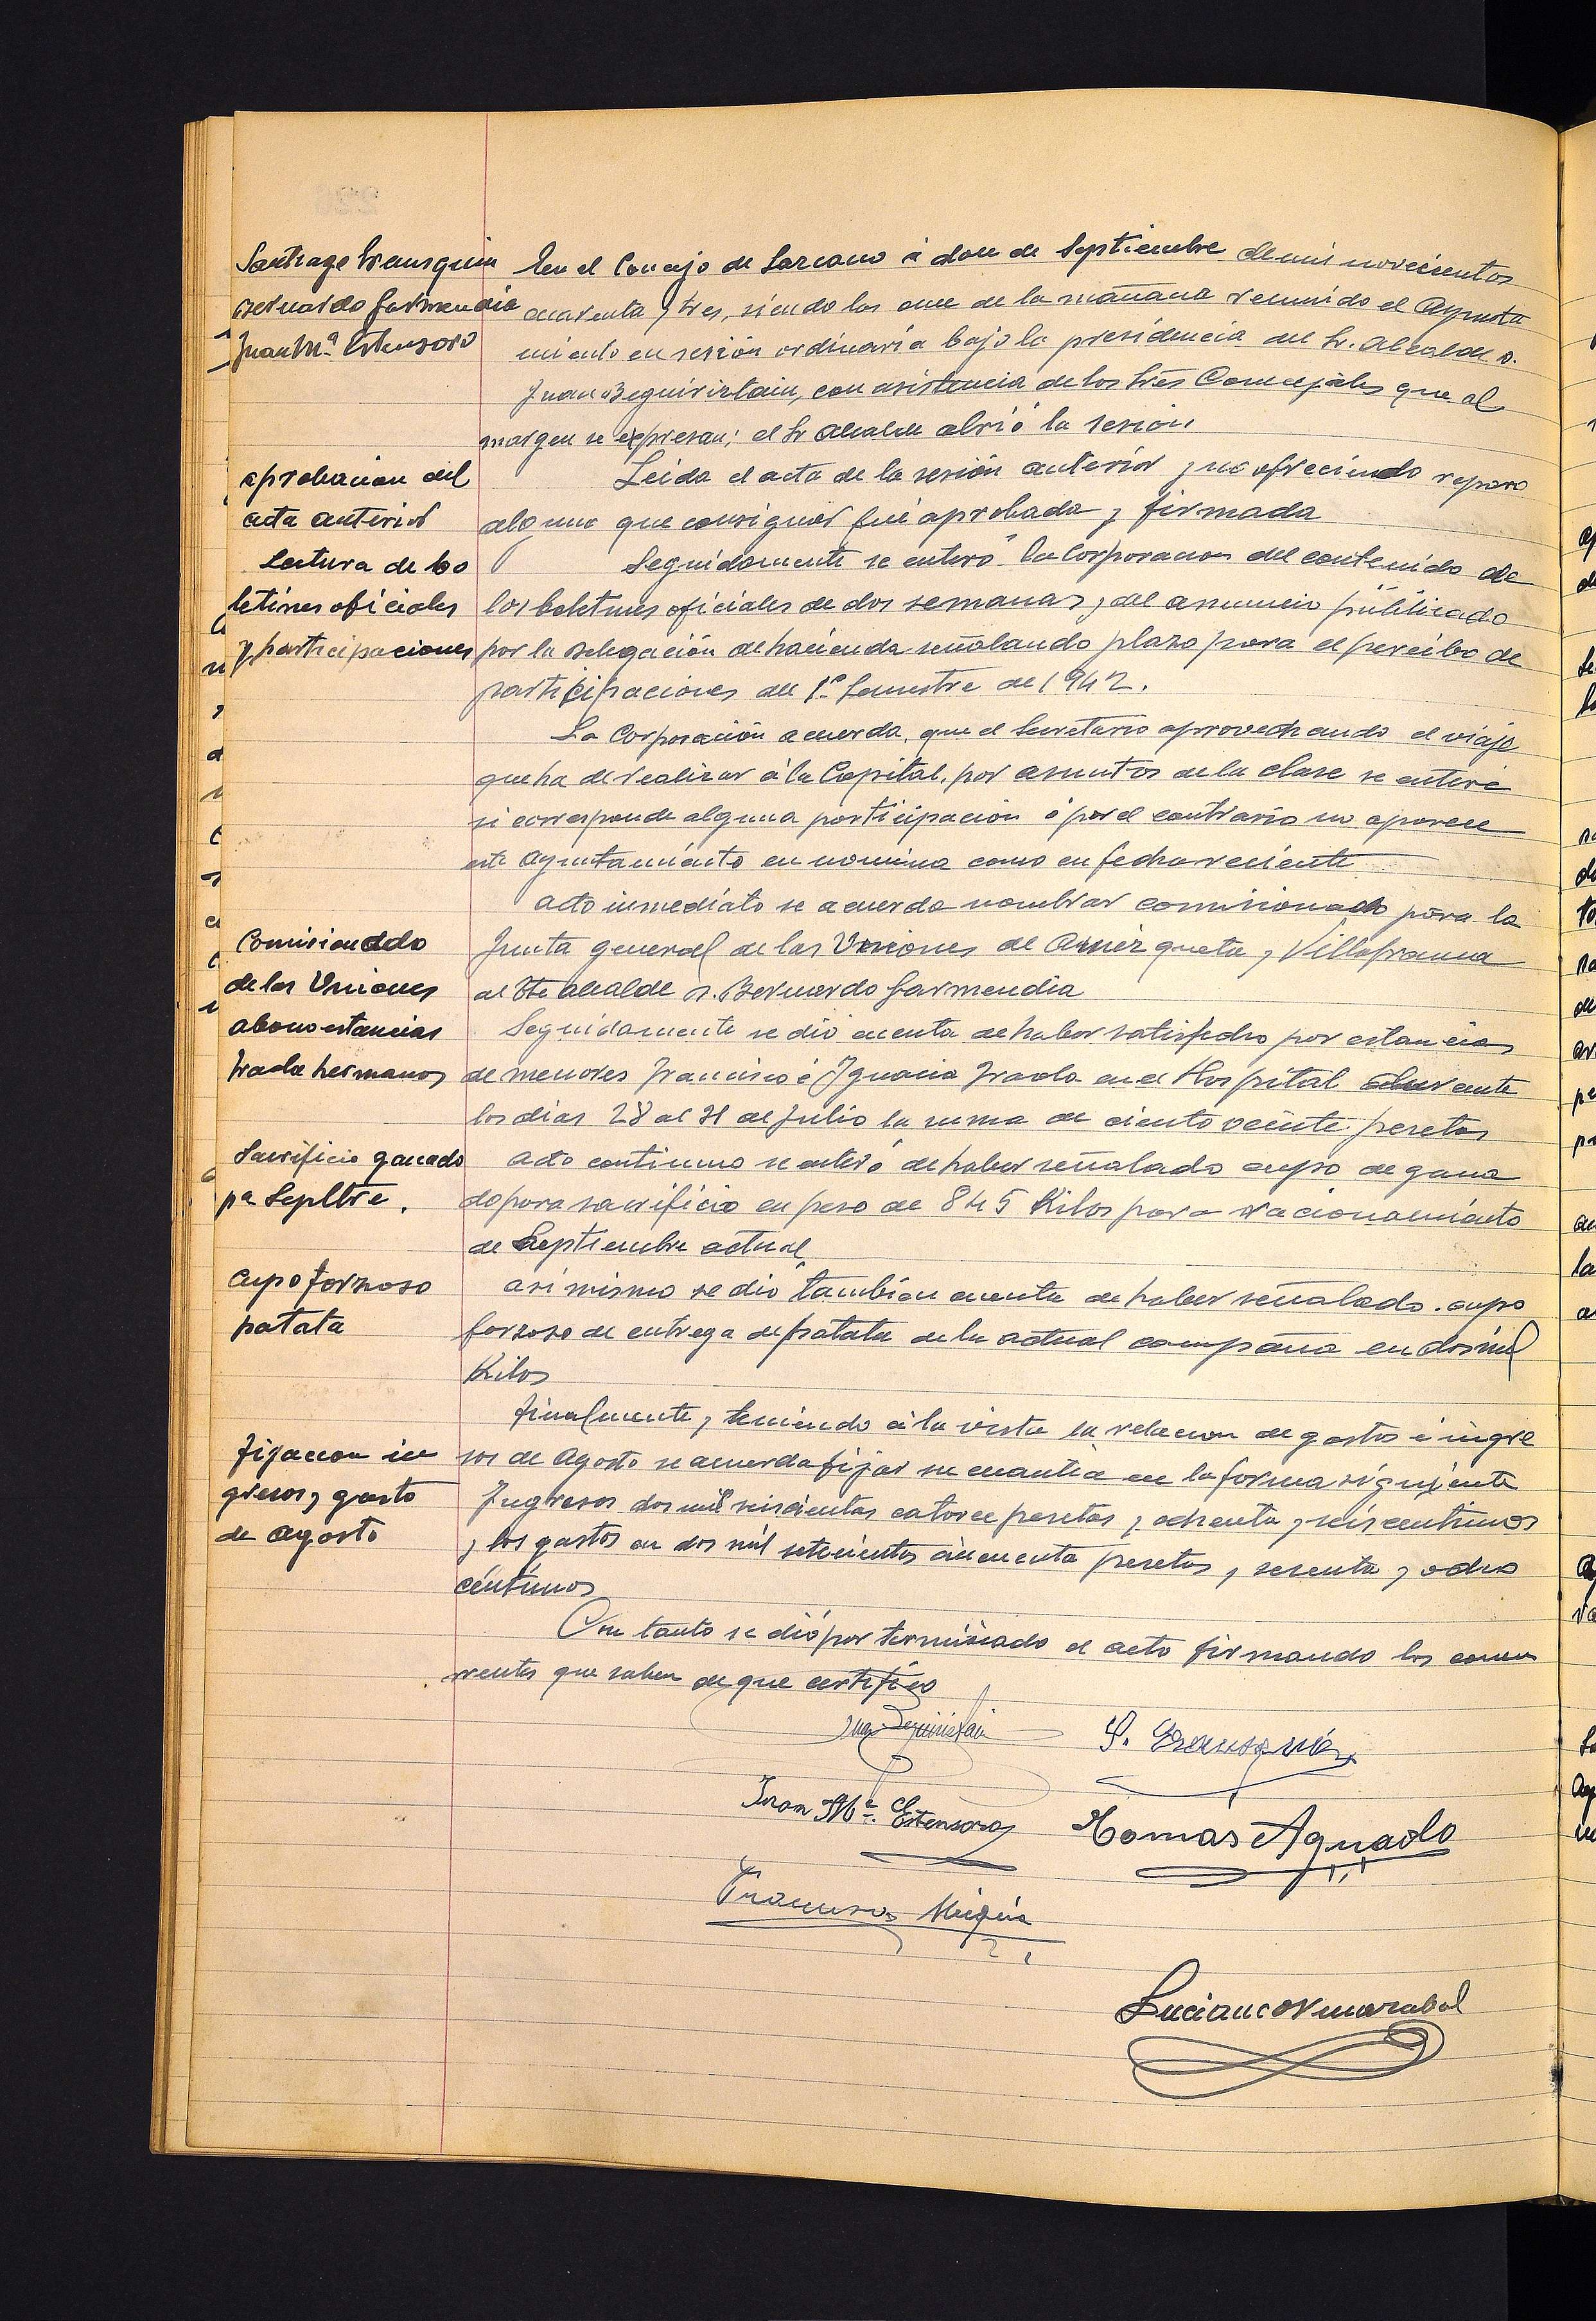 Santiago Irausquin
Bernardo Garmendia
Juan Mª Estensoro
En el Concejo de Lazcano á doce de Septiembre de mil novecientos
cuarenta y tres, siendo las once de la mañana reunido el Ayunta
miento en sesión ordinaria bajo la presidencia del Sr. Alcalde D.
Juan Beguiristain, con asistencia de los tres Concejales que al
margen se expresan; el Sr Alcalde abrió la sesión
aprobacion del
acta anterior
Leida el acta de la sesión anterior y no ofreciendo reparo
alguno que consignar fué aprobada y firmada
Lectura de bo
letines oficiales
y participaciones
Seguidamente se enteró la Corporacion del contenido de
los boletines oficiales de dos semanas y del anuncio publicado
por la Delegación de hacienda señalando plazo para el percibo de
participaciones del 1º Semestre de 1942.
La Corporación acuerda, que el Secretario aprovechando el viaje
que ha de realizar á la Capital, por asuntos de la clase se entere
si corresponde alguna participación ó por el contrario no aparece
este Ayuntamiento en nomina como en fecha reciente
acto inmediato se acuerda nombrar comisionado para la
Comisionado
de las Uniones
Junta general de las Uniones de Amézqueta y Villafranca
al Tte alcalde D. Bernardo Garmendia
abono estancias
Iraola hermanos
Seguidamente se dió cuenta de haber satisfecho por estancias
de menores Francisco é Ignacia Iraola en el Hospital durante
los dias 28 al 31 de Julio la suma de ciento veinte pesetas
Sacrificio ganado
pa Sepltre.
acto continuo se enteró de haber señalado cupo de gana
do para sacrificio en peso de 845 Kilos para racionamiento
de Septiembre actual
cupo forzoso
patata
asi mismo se dió también cuenta de haber señalado cupo
forzoso de entrega de patata de la actual campaña en dos mil
Kilos
Fijacion in
gresos y gasto
de agosto
Finalmente y teniendo á la vista la relacion de gastos é ingre
sos de Agosto se acuerda fijar su cuantia en la forma siguiente
Ingresos dos mil seiscientas catorce pesetas y ochenta y seis centimos
y los gastos en dos mil setecientos cincuenta pesetas y sesenta y ocho
céntimos
Con tanto se dió por terminado el acto firmando los concu
rrentes que saben de que certifico
Juan Beguiristain
S. Irausquin
Juan Mª. Estensoro
Tomás Aguado
Francisco
Luciano